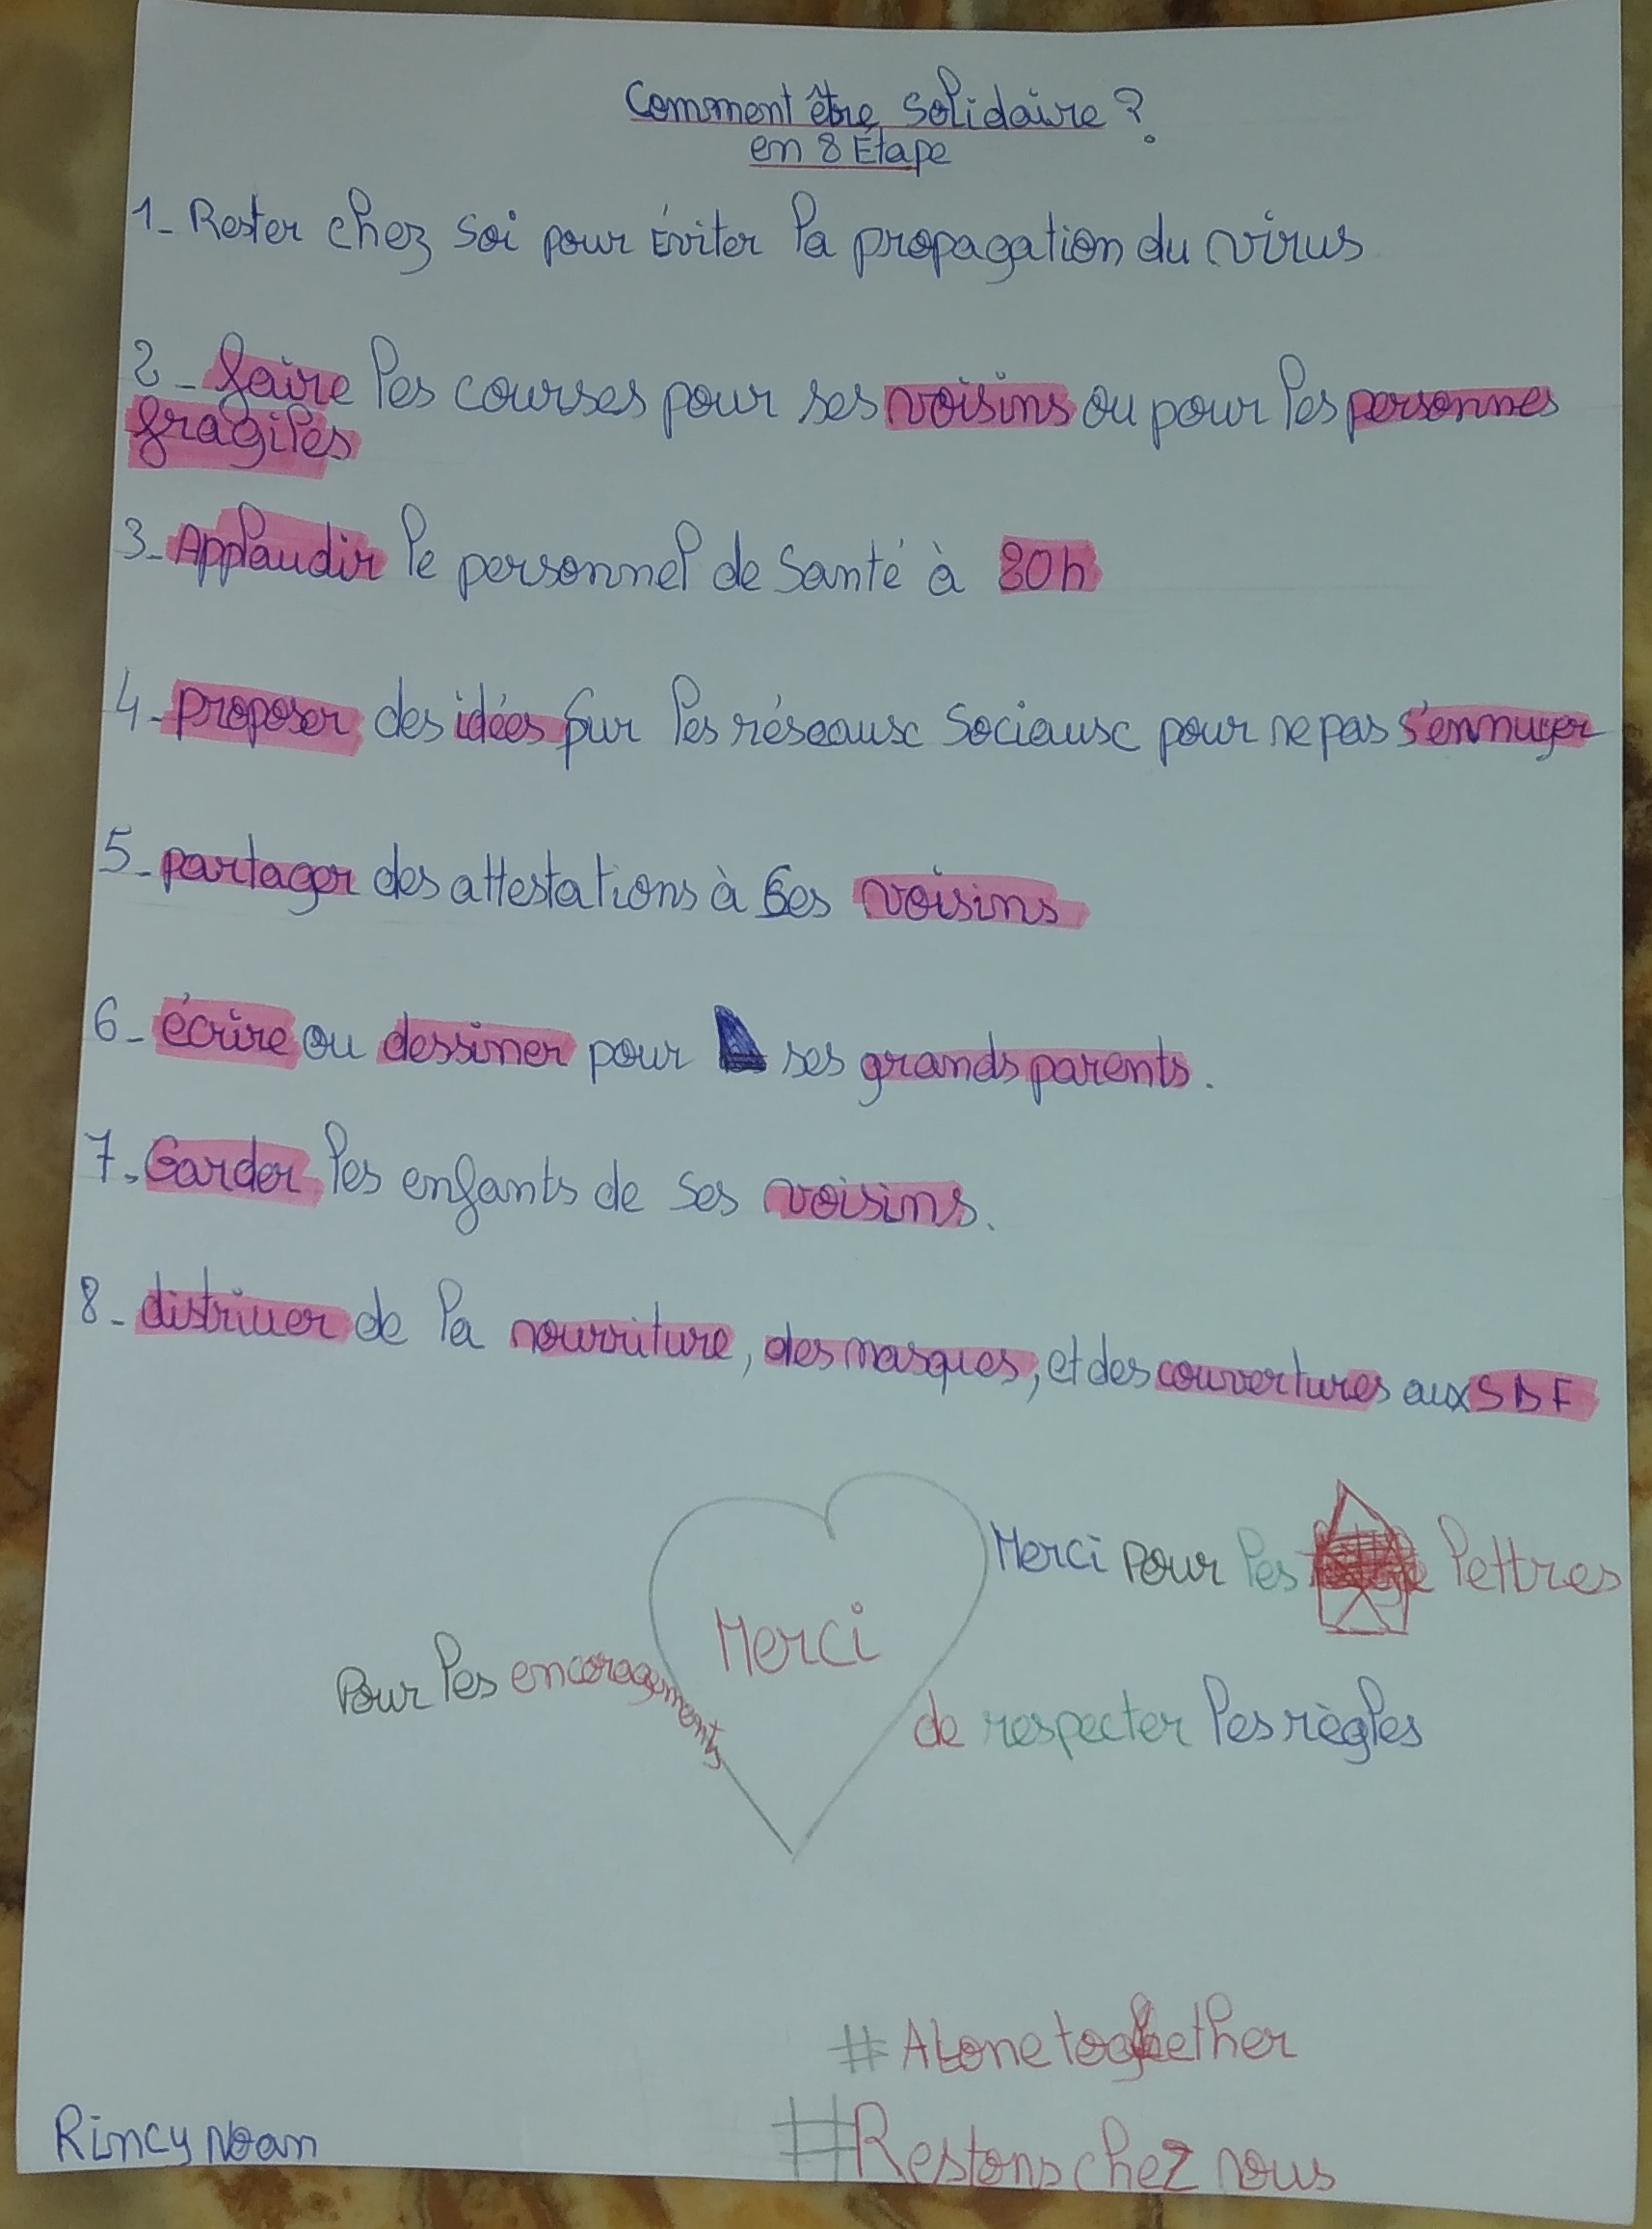 Comment être solidaire ?
en 8 Étape
1- Rester chez soi pour Éviter la propagation du virus
2- faire les courses pour ses voisins ou pour les personnes
fragiles
3- Applaudir le personnel de Santé à 20h
4- proposer des idées sur les réseaux sociaux pour ne pas s'ennuyer
5- partager des attestations à ses voisins
6- écrire ou dessiner pour ses grands parents.
7- Garder les enfants de ses voisins.
8- distriuer de la nourriture, des masques, et des couvertures aux SDF
Merci pour les lettres
Merci
Pour les encoragements
de respecter les règles
#Alone together
#Restons chez nous
Rincy Noan